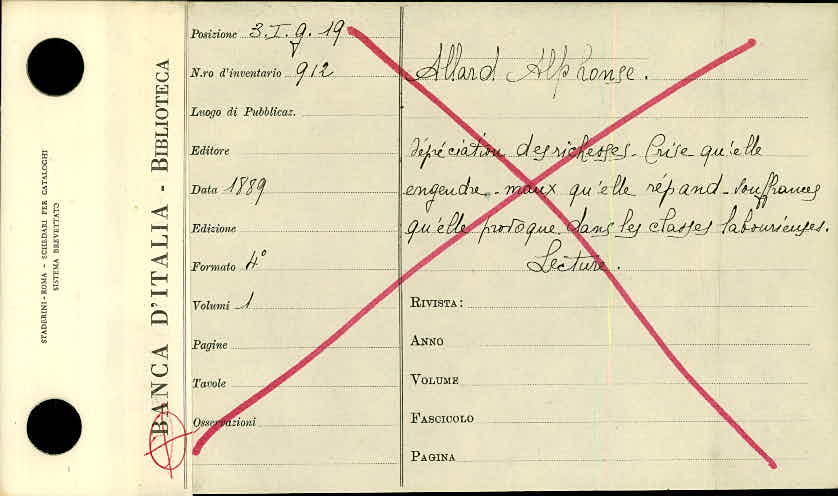 STADERINI - ROMA - SCHEDARI PER CATALOGHI
SISTEMA BREVETTATO
BANCA D'ITALIA - BIBLIOTECA
Posizione 3.I.9.19
N.ro d'inventario 912
Luogo di Pubblicaz.
Editore
Data 1889
Edizione
Formato 4°
Volumi 1
Pagine
Tavole
Osservazioni
Allard Alphonse.
dépréciation des richesses - Crise qu'elle
engendre - maux qu'elle répand - souffrances
qu'elle provoque dans les classes labourieuses.
Lecture.
RIVISTA:
ANNO
VOLUME
FASCICOLO
PAGINA